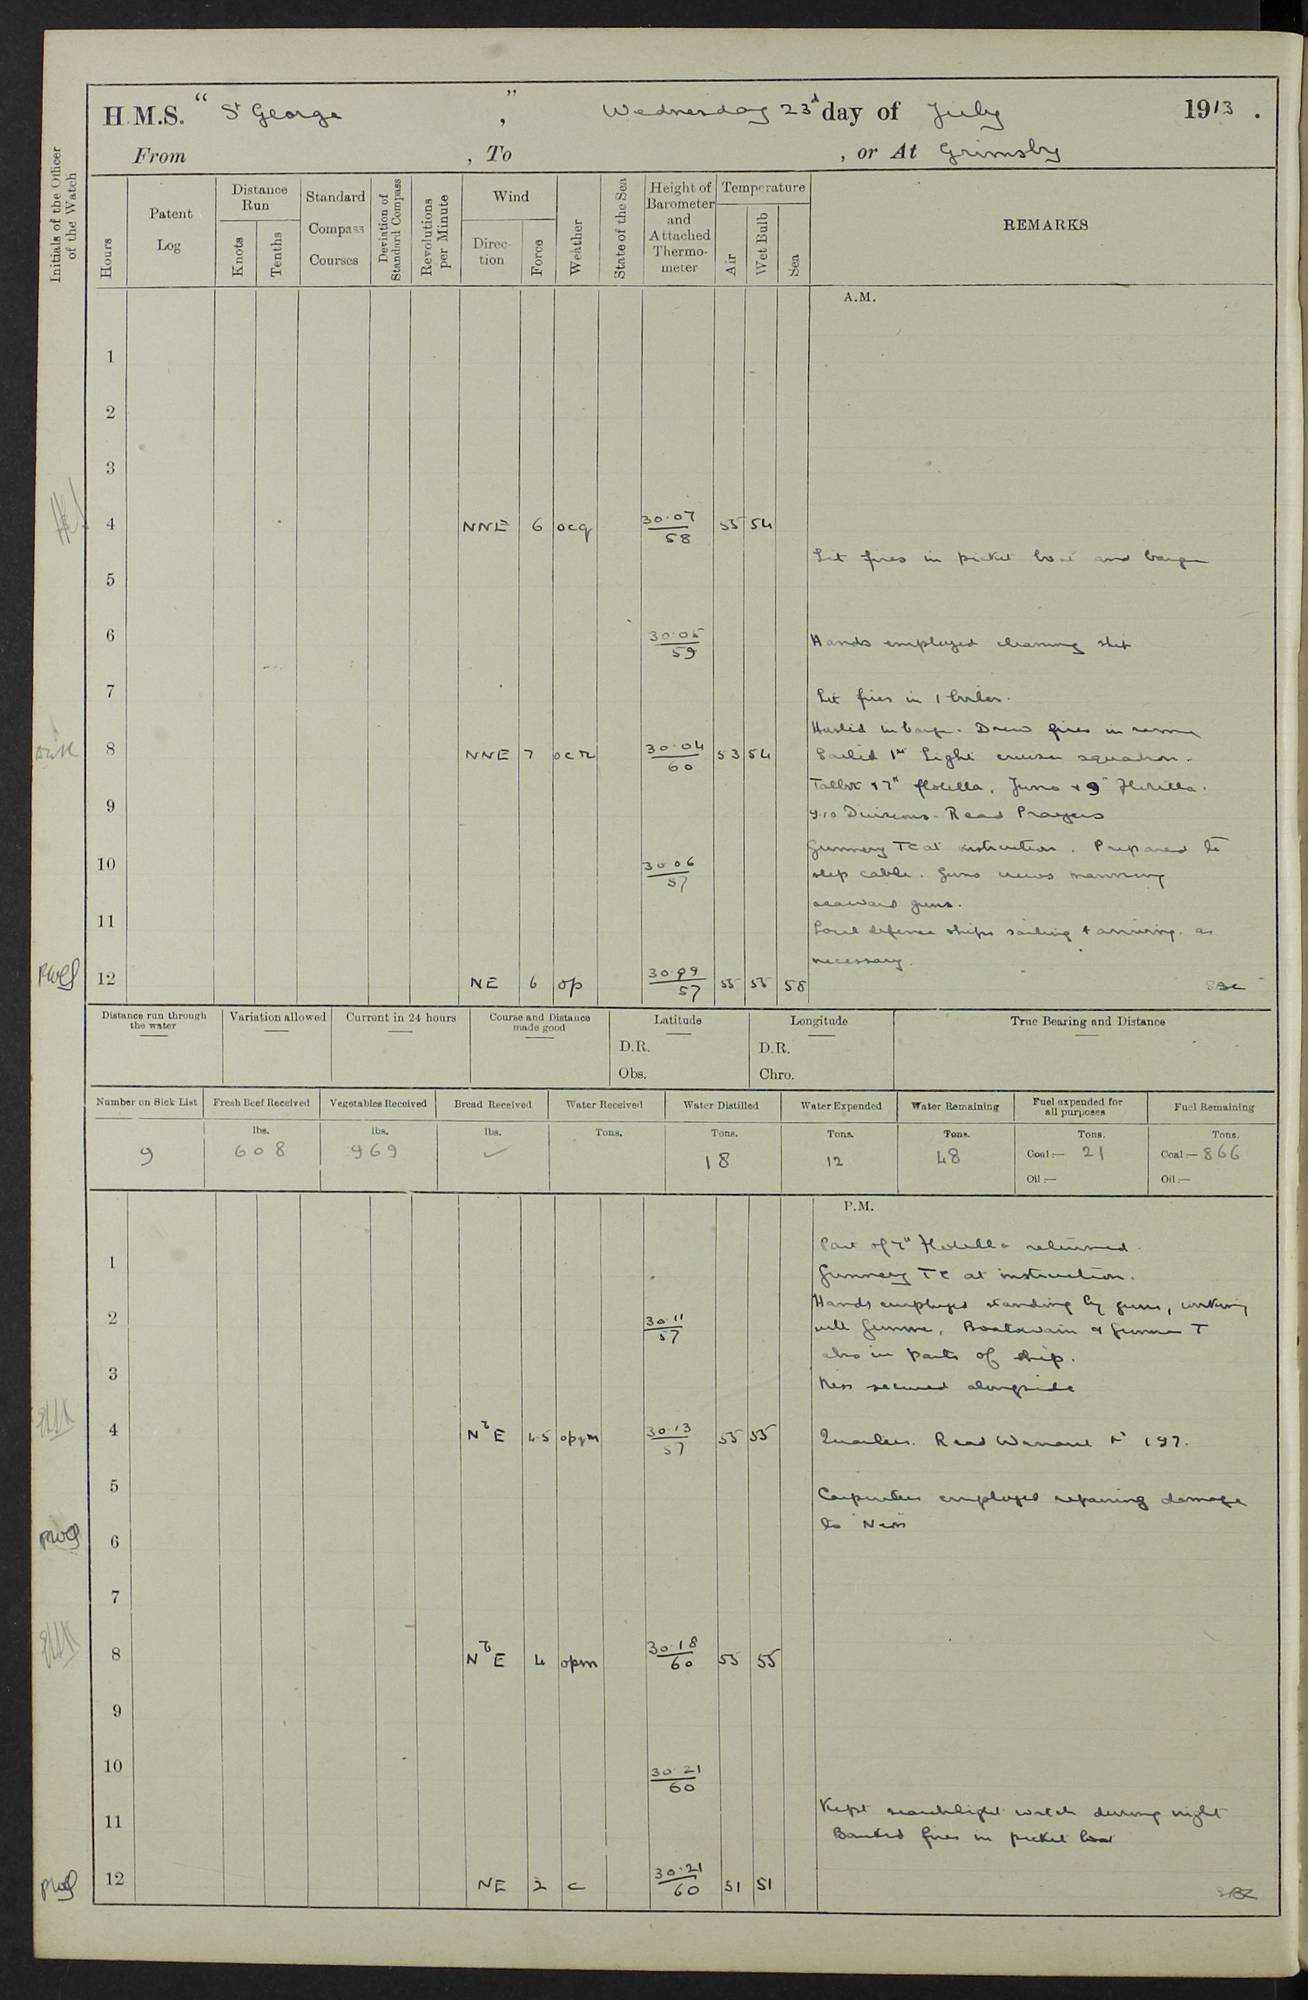 H.M.S. "St George", Wednesday 23d day of July 1913.
From , To , or At Grimsby
Initials of the Officer of the Watch
Hours
Patent Log
Distance Run
Knots
Tenths
Standard Compass Courses
Deviation of Standard Compass
Revolutions per Minute
Wind
Direction
Force
Weather
State of the Sea
Height of Barometer and Attached Thermometer
Temperature
Air
Wet Bulb
Sea
REMARKS
A.M.
1
2
3
4 NNE 6 ocq 30.07 58 55 54
Lit fires in picket boat and barge
5
6 30.05 59 Hands employed cleaning ship
7 Lit fires in 1 boiler.
Hoisted in barge. Drew fires in same
8 NNE 7 ocr 30.04 60 53 54 Sailed 1st Light cruiser squadron.
Talbot & 7th flotilla, Juno & 9th Flotilla.
9 9.10 Divisions. Read Prayers
Gunnery TC at instruction. Prepared to
10 30.06 57 slip cable. Guns crews manning
seaward guns.
11 Local defence ships sailing & arriving as
necessary.
12 NE 6 op 30.09 57 55 55 58
Distance run through the water
Variation allowed
Current in 24 hours
Course and Distance made good
Latitude
D.R.
Obs.
Longitude
D.R.
Chro.
True Bearing and Distance
Number on Sick List
Fresh Beef Received
Vegetables Received
Bread Received
Water Received
Water Distilled
Water Expended
Water Remaining
Fuel expended for all purposes
Fuel Remaining
lbs. lbs. lbs. Tons. Tons. Tons. Tons. Tons. Tons.
9 608 969 ✓ 18 12 48 Coal:— 21 Coal:— 866
Oil:— Oil:—
P.M.
Part of 7th Flotilla returned.
1 Gunnery TC at instruction.
Hands employed standing by guns, working
2 30.11 57 with Gunner, Boatswain & Gunner T
also in parts of ship.
3 Ness secured alongside
4 NbE 4.5 opqm 30.13 57 55 55 Quarters. Read Warrant No 197.
5 Carpenters employed repairing damage
to Ness
6
7
8 NbE 4 opm 30.18 60 55 55
9
10 30.21 60
11 Kept searchlight watch during night
Banked fires in picket boat
12 NE 2 c 30.21 60 51 51